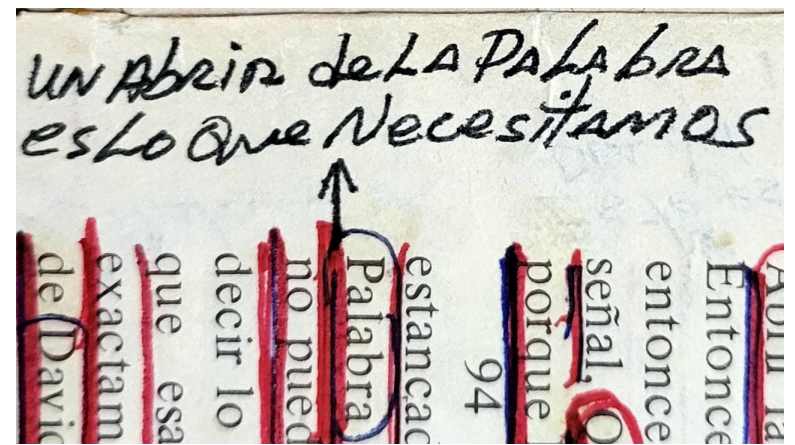 UN AbRiR de LA PALAbRA
es Lo Que NecesitAMOS
Abrir la
Entonce
entonce
señal, O
porque
94
estancad
Palabra
no pued
decir lo
que esa
exactam
de David